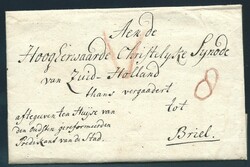 Aen de
HoogEerwaarde Christelyke Synode
van Zuid-Holland
thans vergaedert
tot
Briel.
afgegeven ten Huijse van
den oudsten gereformeerden
Predikant van de Stad.
8